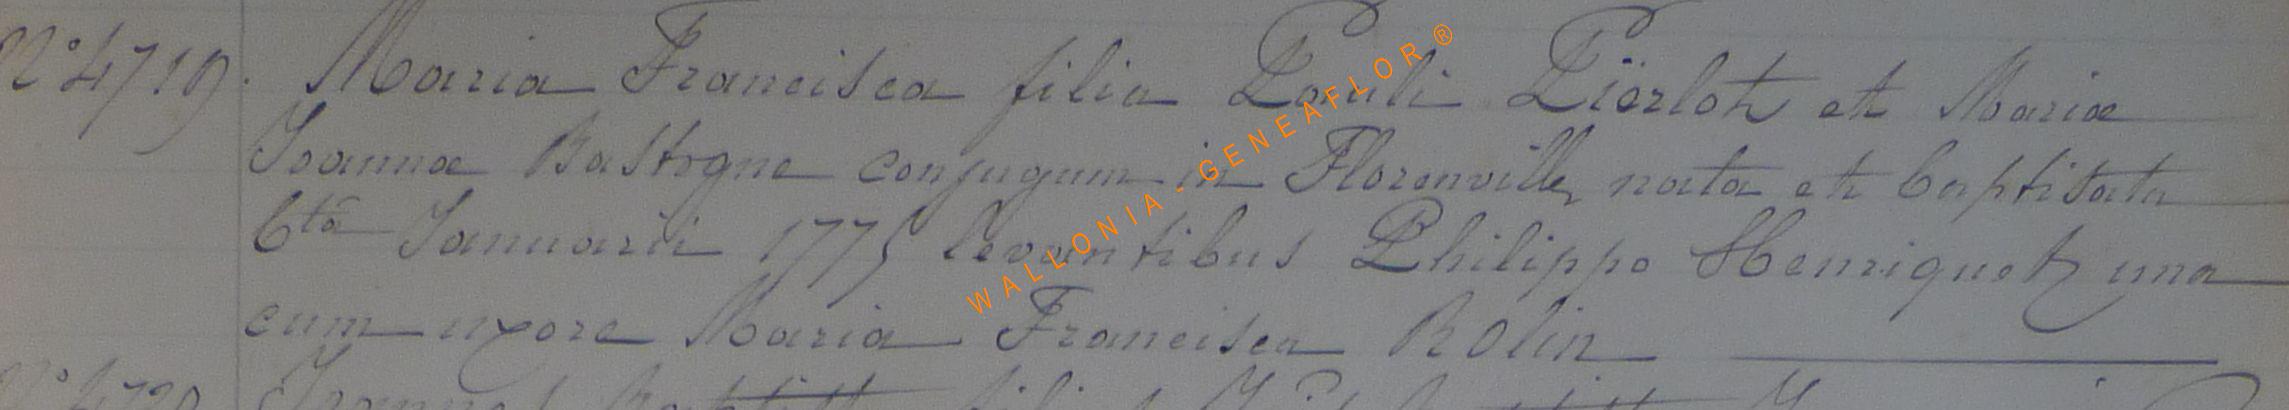 N° 4719. Maria Francisca filia Pauli Piërlot et Mariæ
Joannæ Bastogne conjugum in Florenville nata et baptisata
6tâ Januarii 1775 levantibus Philippo Henriquet una
cum uxore Maria Francisca Rolin
N° 4720 Joannes
WALLONIA - GENEAFLOR ®